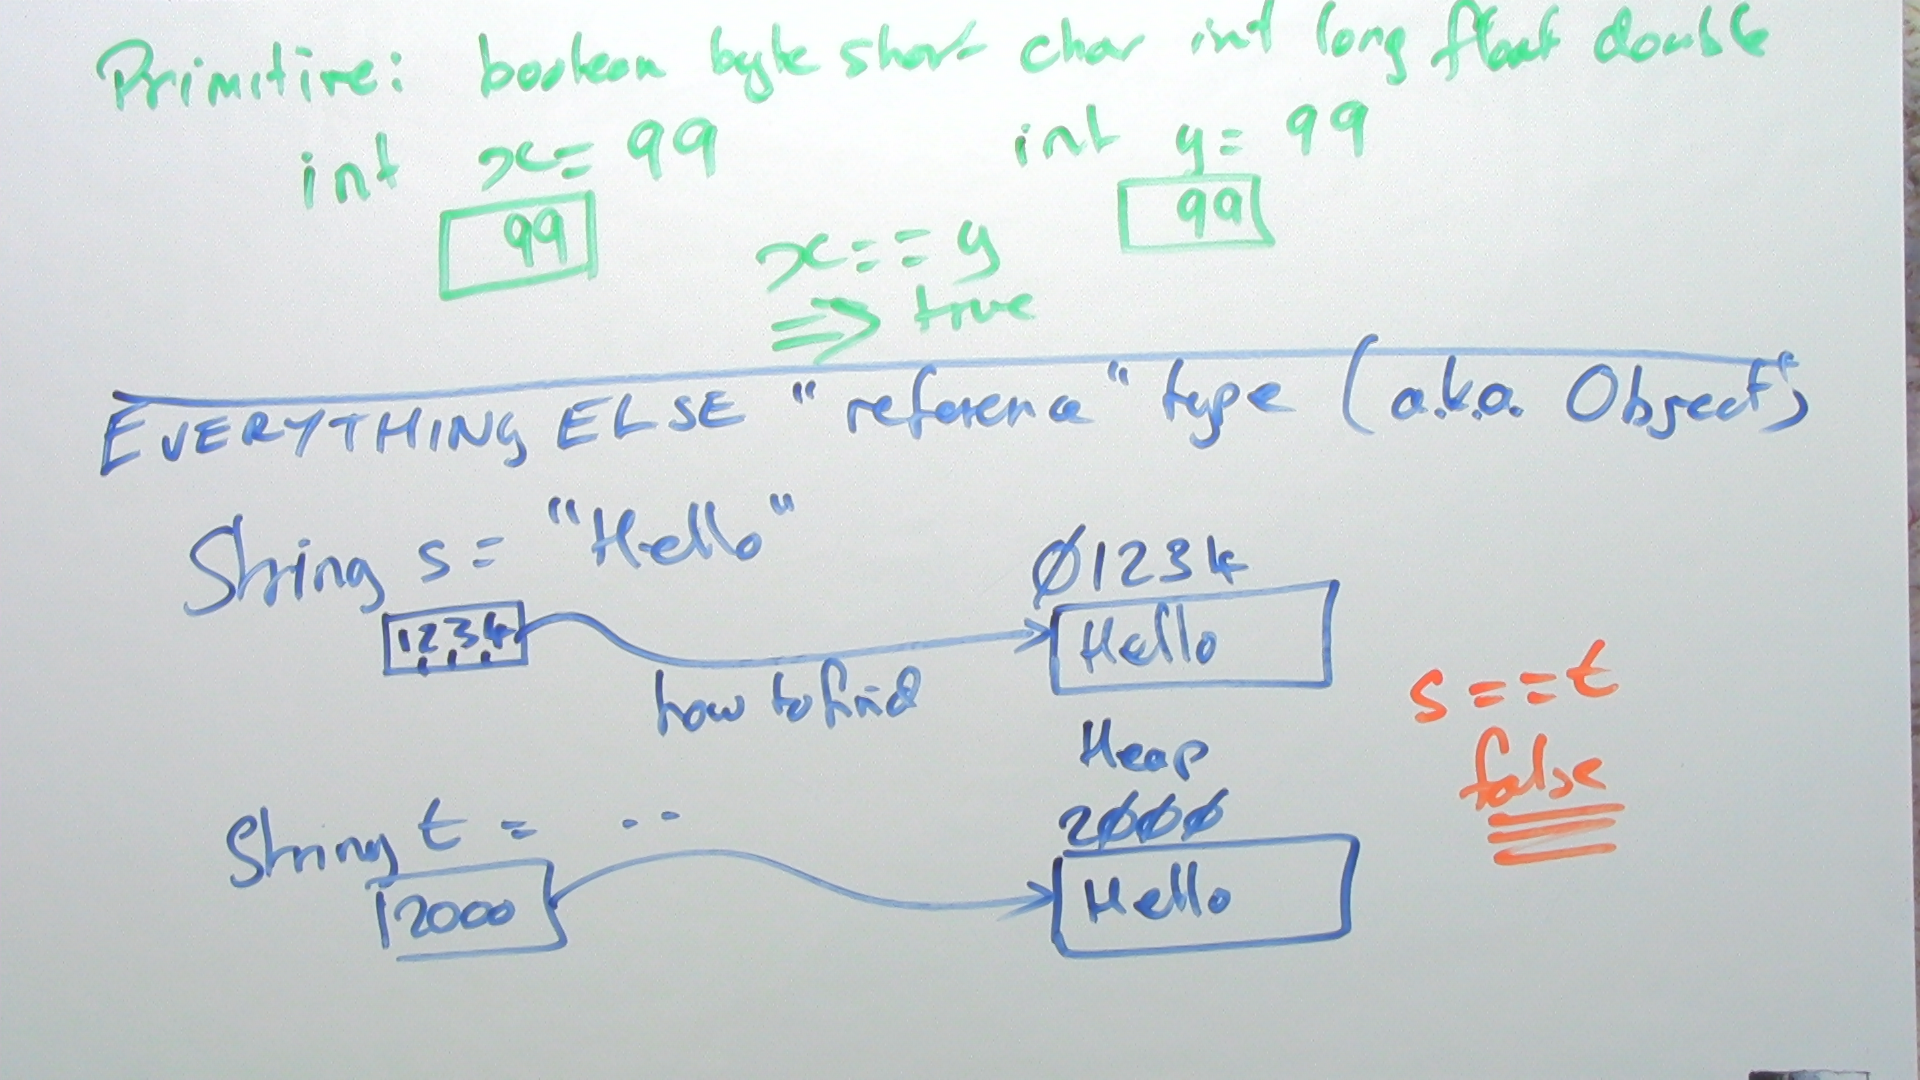 Primitive: boolean byte short char int long float double
int x = 99
int y = 99
99
99
x == y
=> true
EVERYTHING ELSE "reference" type (a.k.a. Object)
String s = "Hello"
1234
how to find
Ø1234
Hello
Heap
s == t
false
String t = ..
2000
2ØØØ
Hello